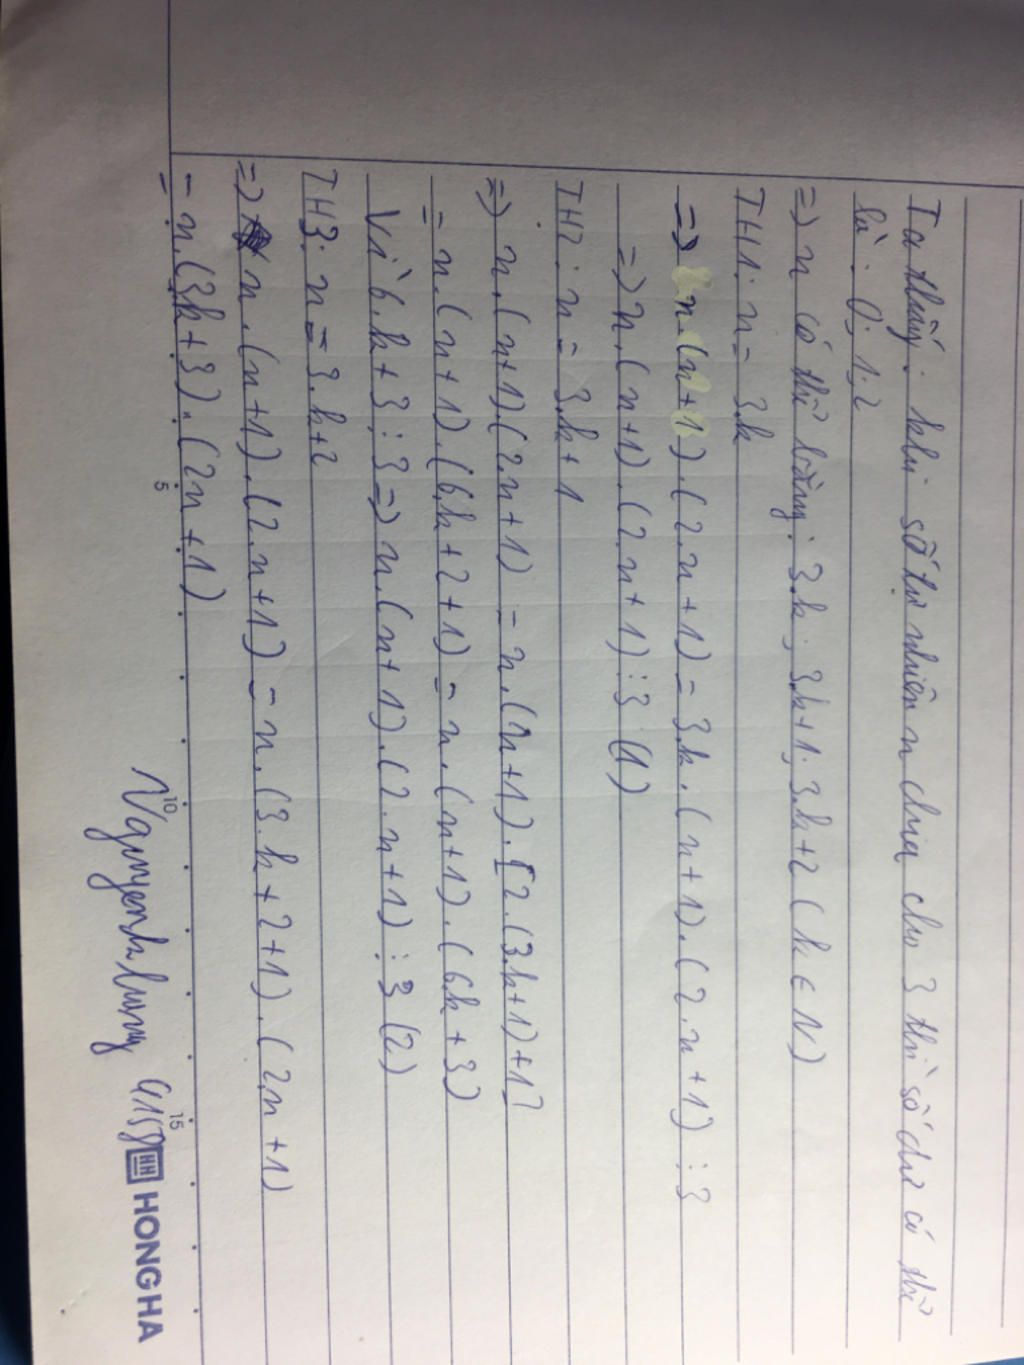 Ta thấy: khi số tự nhiên n chia cho 3 thì số dư có thể
là: 0; 1; 2
=> n có thể bằng: 3.k; 3.k+1; 3.k+2 (k ∈ N)
TH1: n = 3.k
=> n.(n+1).(2.n+1) = 3.k.(n+1).(2.n+1) ⋮ 3
=> n.(n+1).(2.n+1) ⋮ 3 (1)
TH2: n = 3.k+1
=> n.(n+1).(2.n+1) = n.(n+1).[2.(3.k+1)+1]
= n.(n+1).(6.k+2+1) = n.(n+1).(6k+3)
Vì 6.k+3 ⋮ 3 => n.(n+1).(2.n+1) ⋮ 3 (2)
TH3: n = 3.k+2
=> n.(n+1).(2.n+1) = n.(3.k+2+1).(2n+1)
= n.(3k+3).(2n+1)
5 10 15
HONG HA